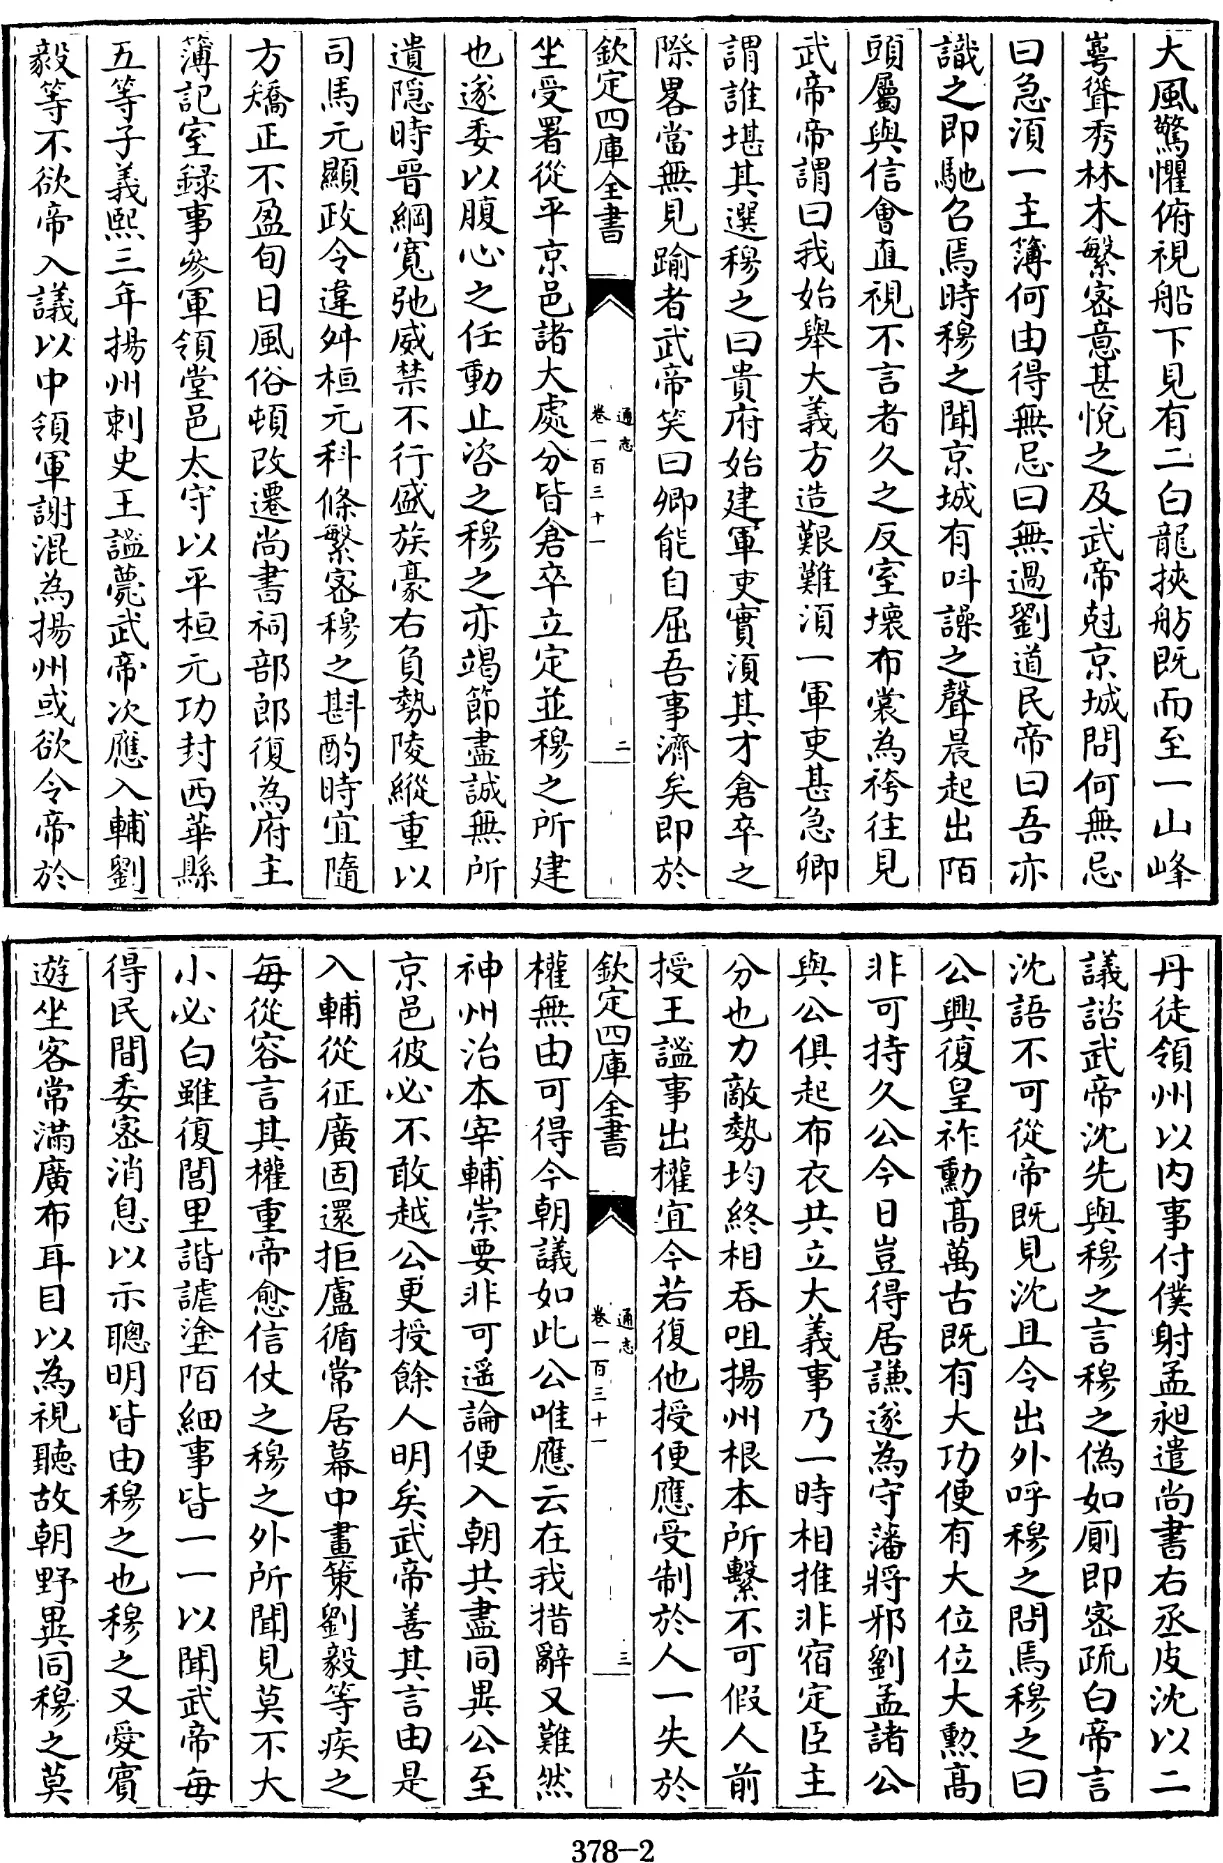 大風驚懼俯視船下見有二白龍挾舫既而至一山峰
崿聳秀林木繁密意甚悅之及武帝尅京城問何無忌
曰急須一主簿何由得無忌曰無過劉道民帝曰吾亦
識之即馳召焉時穆之聞京城有叫譟之聲晨起出陌
頭屬與信會直視不言者久之反室壞布裳為袴往見
武帝帝謂曰我始舉大義方造艱難須一軍吏甚急卿
謂誰堪其選穆之曰貴府始建軍吏實須其才倉卒之
際畧當無見踰者武帝笑曰卿能自屈吾事濟矣即於
欽定四庫全書
通志
卷一百三十一
二
坐受署從平京邑諸大處分皆倉卒立定並穆之所建
也遂委以腹心之任動止咨之穆之亦竭節盡誠無所
遺隠時晉綱寛弛威禁不行盛族豪右負勢陵縱重以
司馬元顯政令違舛桓元科條繁密穆之斟酌時宜隨
方矯正不盈旬日風俗頓改遷尚書祠部郎復為府主
簿記室録事參軍領堂邑太守以平桓元功封西華縣
五等子義熙三年揚州刺史王謐薨武帝次應入輔劉
毅等不欲帝入議以中領軍謝混為揚州或欲令帝於
丹徒領州以内事付僕射孟昶遣尚書右丞皮沈以二
議諮武帝沈先與穆之言穆之偽如厠即密疏白帝言
沈語不可從帝既見沈且令出外呼穆之問焉穆之曰
公興復皇祚勳高萬古既有大功便有大位位大勲高
非可持久公今日豈得居謙遂為守藩將邪劉孟諸公
與公俱起布衣共立大義事乃一時相推非宿定臣主
分也力敵勢均終相吞咀揚州根本所繫不可假人前
授王謐事出權宜今若復他授便應受制於人一失於
欽定四庫全書
通志
卷一百三十一
三
權無由可得今朝議如此公唯應云在我措辭又難然
神州治本宰輔崇要非可遥論便入朝共盡同異公至
京邑彼必不敢越公更授餘人明矣武帝善其言由是
入輔從征廣固還拒盧循常居幕中畫策劉毅等疾之
每從容言其權重帝愈信仗之穆之外所聞見莫不大
小必白雖復閭里諧謔塗陌細事皆一一以聞武帝每
得民間委密消息以示聰明皆由穆之也穆之又愛賓
遊坐客常滿廣布耳目以為視聽故朝野異同穆之莫
378-2